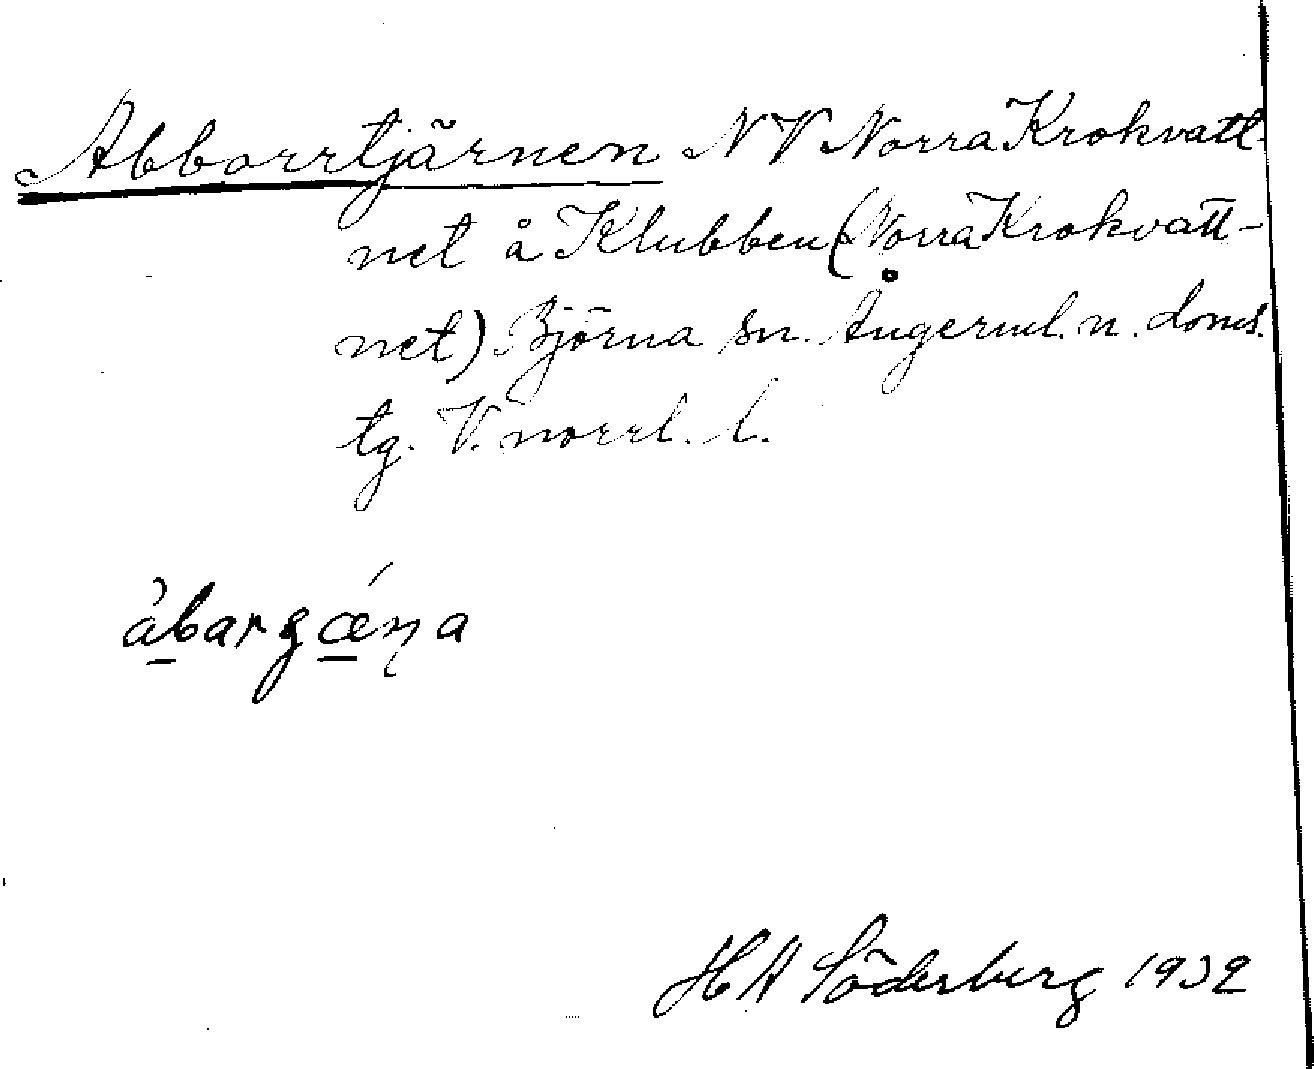 Abborrtjärnen NV Norra Krokvatt-
net å Klubben (Norra Krokvatt-
net) Björna sn. Ångerml. n. doms.
tg. V. norrl. l.
H A Söderberg 1932